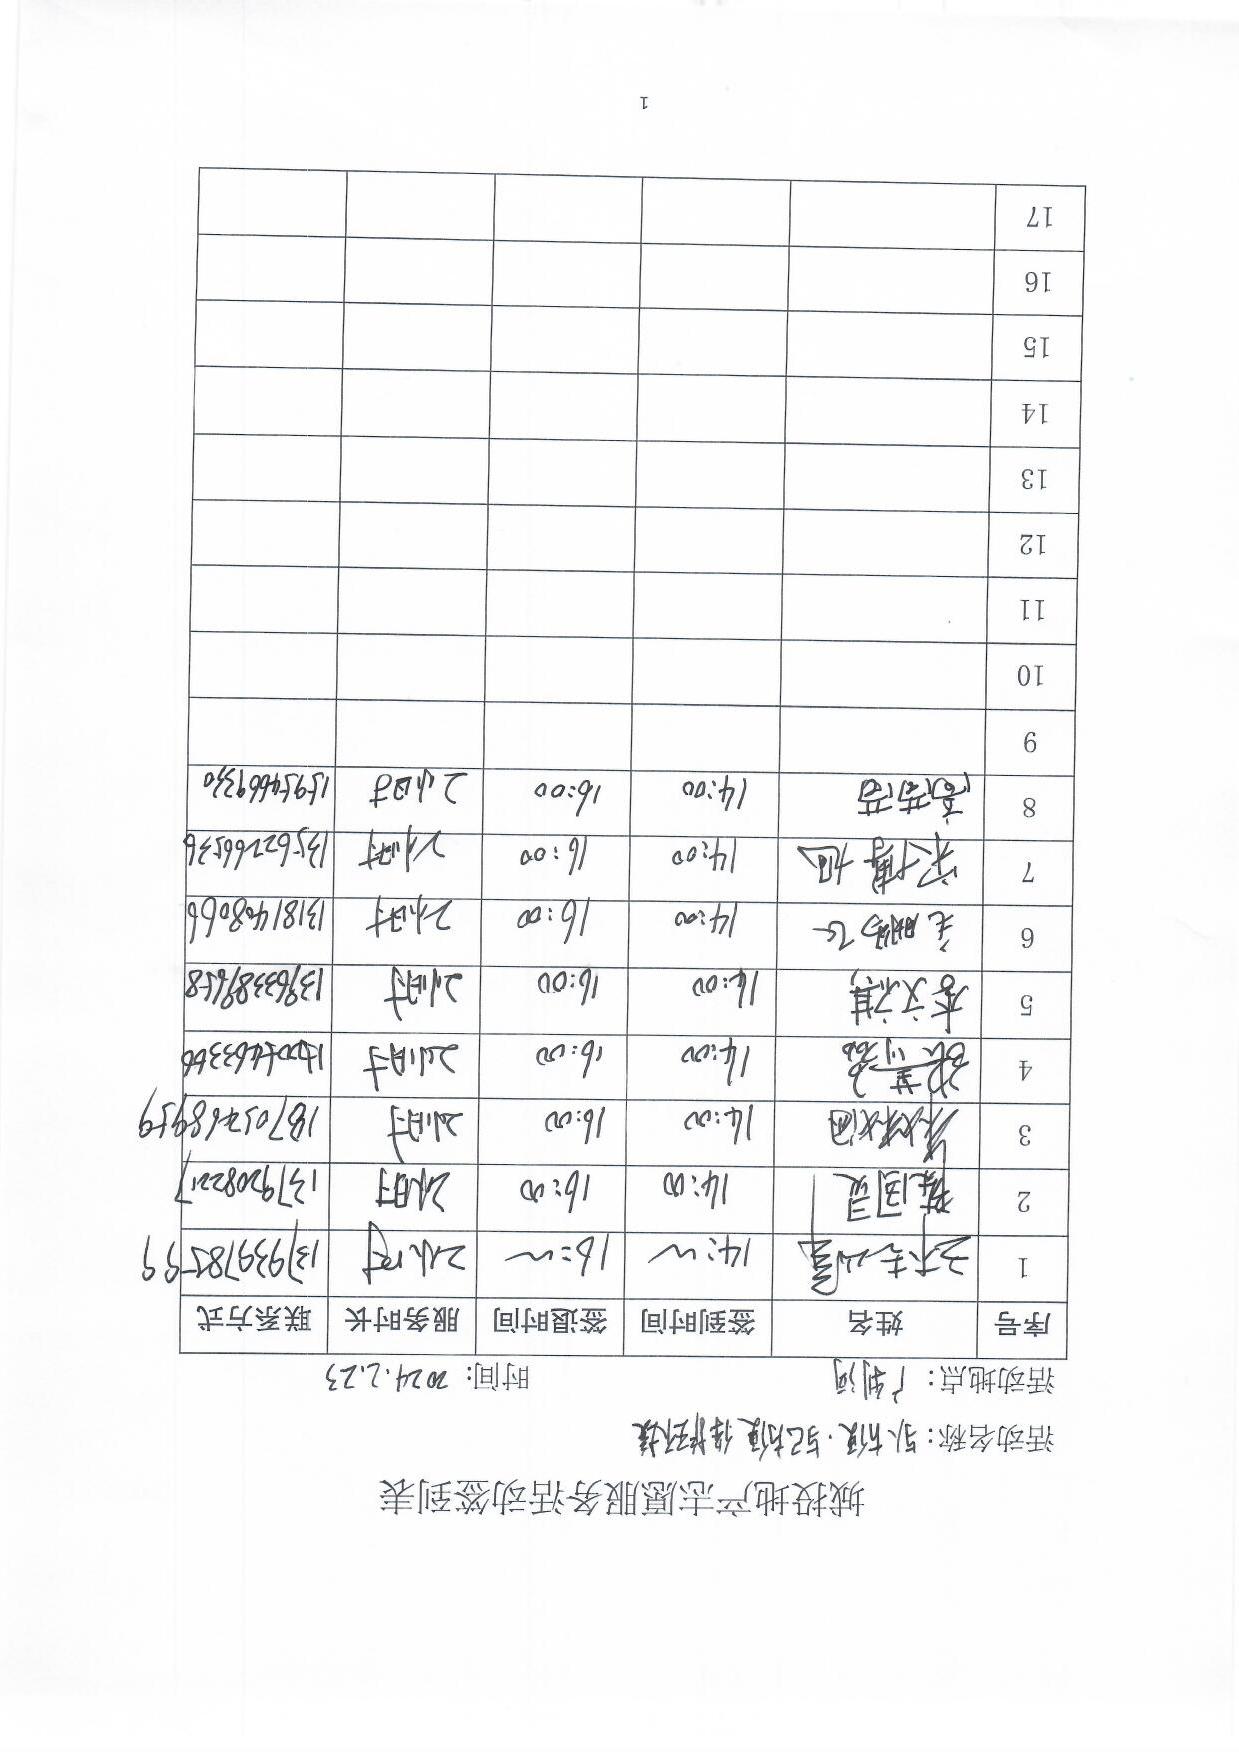 城投地产志愿服务活动签到表
活动名称：
活动地点：广利河 时间：2024.2.23
序号 姓名 签到时间 签退时间 服务时长 联系方式
1 14:00 16:00 2小时
2 14:00 16:00 2小时 13792082217
3 14:00 16:00 2小时 18705468959
4 14:00 16:00 2小时
5 李文祺 14:00 16:00 2小时 13963389658
6 14:00 16:00 2小时 13181408066
7 宋博旭 14:00 16:00 2小时 13562266536
8 高蓓蓓 14:00 16:00 2小时 15954669330
9
10
11
12
13
14
15
16
17
1